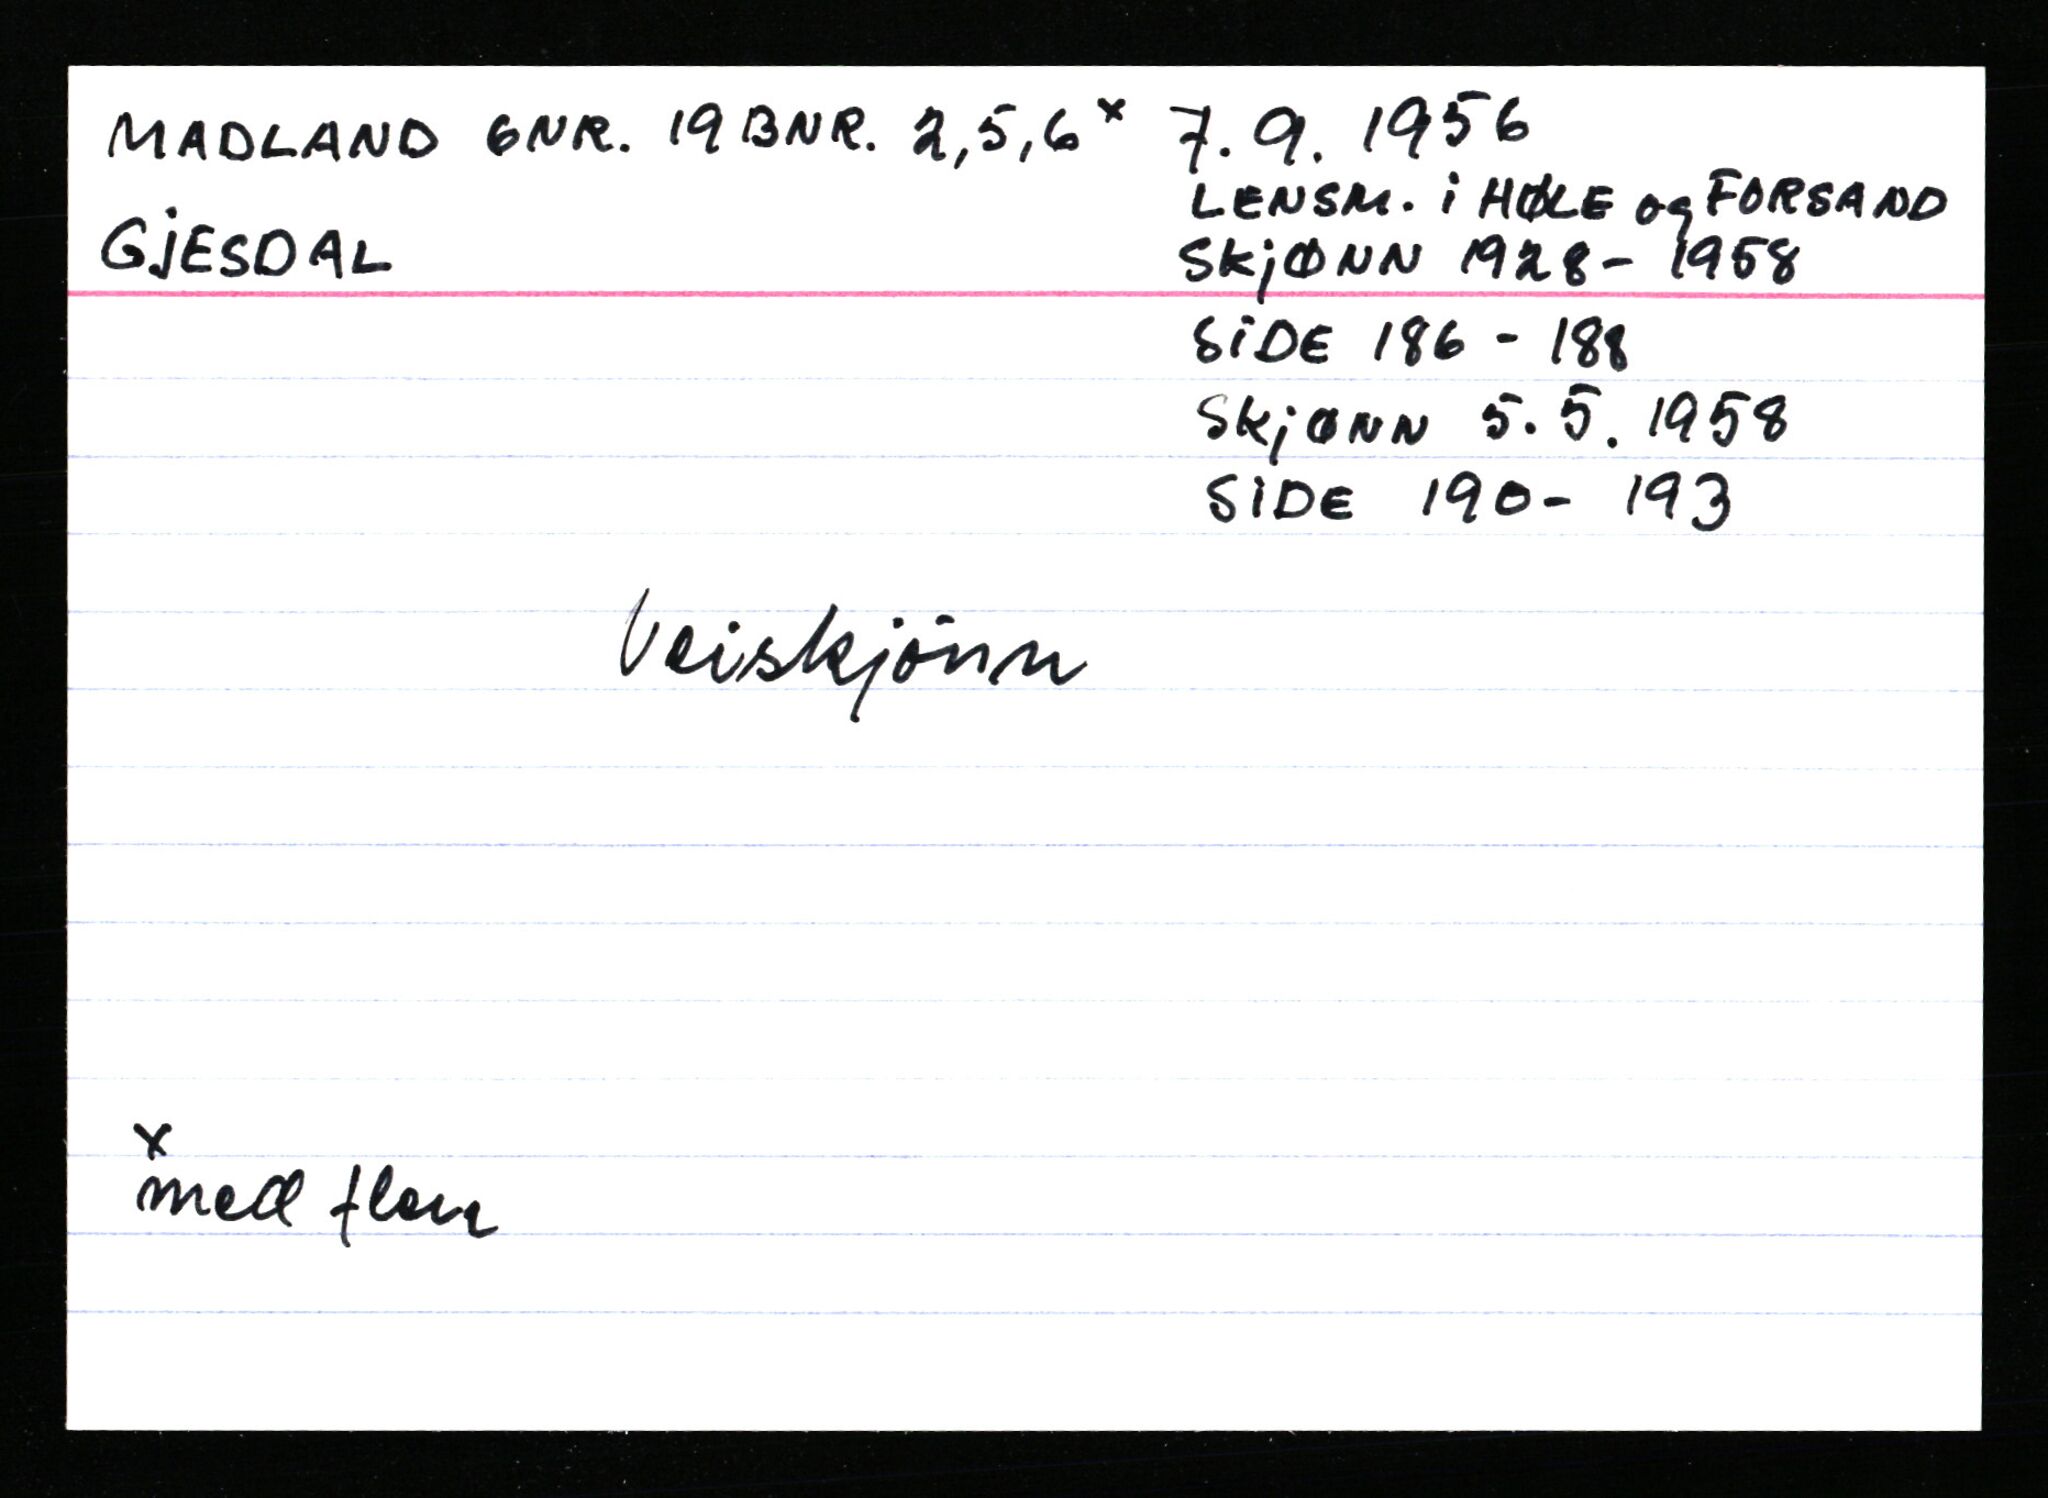 MADLAND GNR. 19 BNR. 2,5,6 x 7.9.1956
LENSM. i HØLE og FORSAND
GJESDAL
SKJØNN 1928-1958
SIDE 186-188
SKJØNN 5.5.1958
SIDE 190-193
Veiskjönn
x
med flere